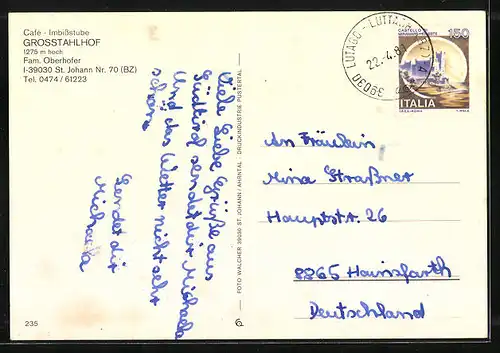 Café - Imbißstube
GROSSTAHLHOF
1275 m hoch
Fam. Oberhofer
I-39030 St. Johann Nr. 70 (BZ)
Tel. 0474 / 61223
Viele Liebe Grüße aus
Südtirol sendet dir Michaela
Und das Wetter nicht sehr
schön
Sendet dir
Michaela
235
FOTO WALCHER 39030 ST. JOHANN / AHRNTAL - DRUCKINDUSTRIE PUSTERTAL
6
39030 LUTAGO - LUTTACH (BZ)
22.4.8
CASTELLO
150
ITALIA
An Fräulein
Mina Straßner
Hauptstr. 26
8865 Hainsfarth
Deutschland